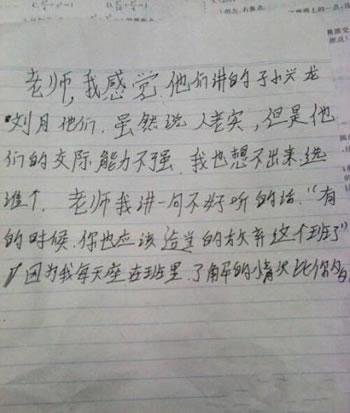 老师,我感觉他们讲的子小兴龙
刘月他们.虽然说人老实,但是他
们的交际能力不强.我也想不出来选
谁个.老师我讲一句不好听的话."有
的时候.你也应该适当的放弃这个班了"
因为我每天座在班里.了解的情况比你多